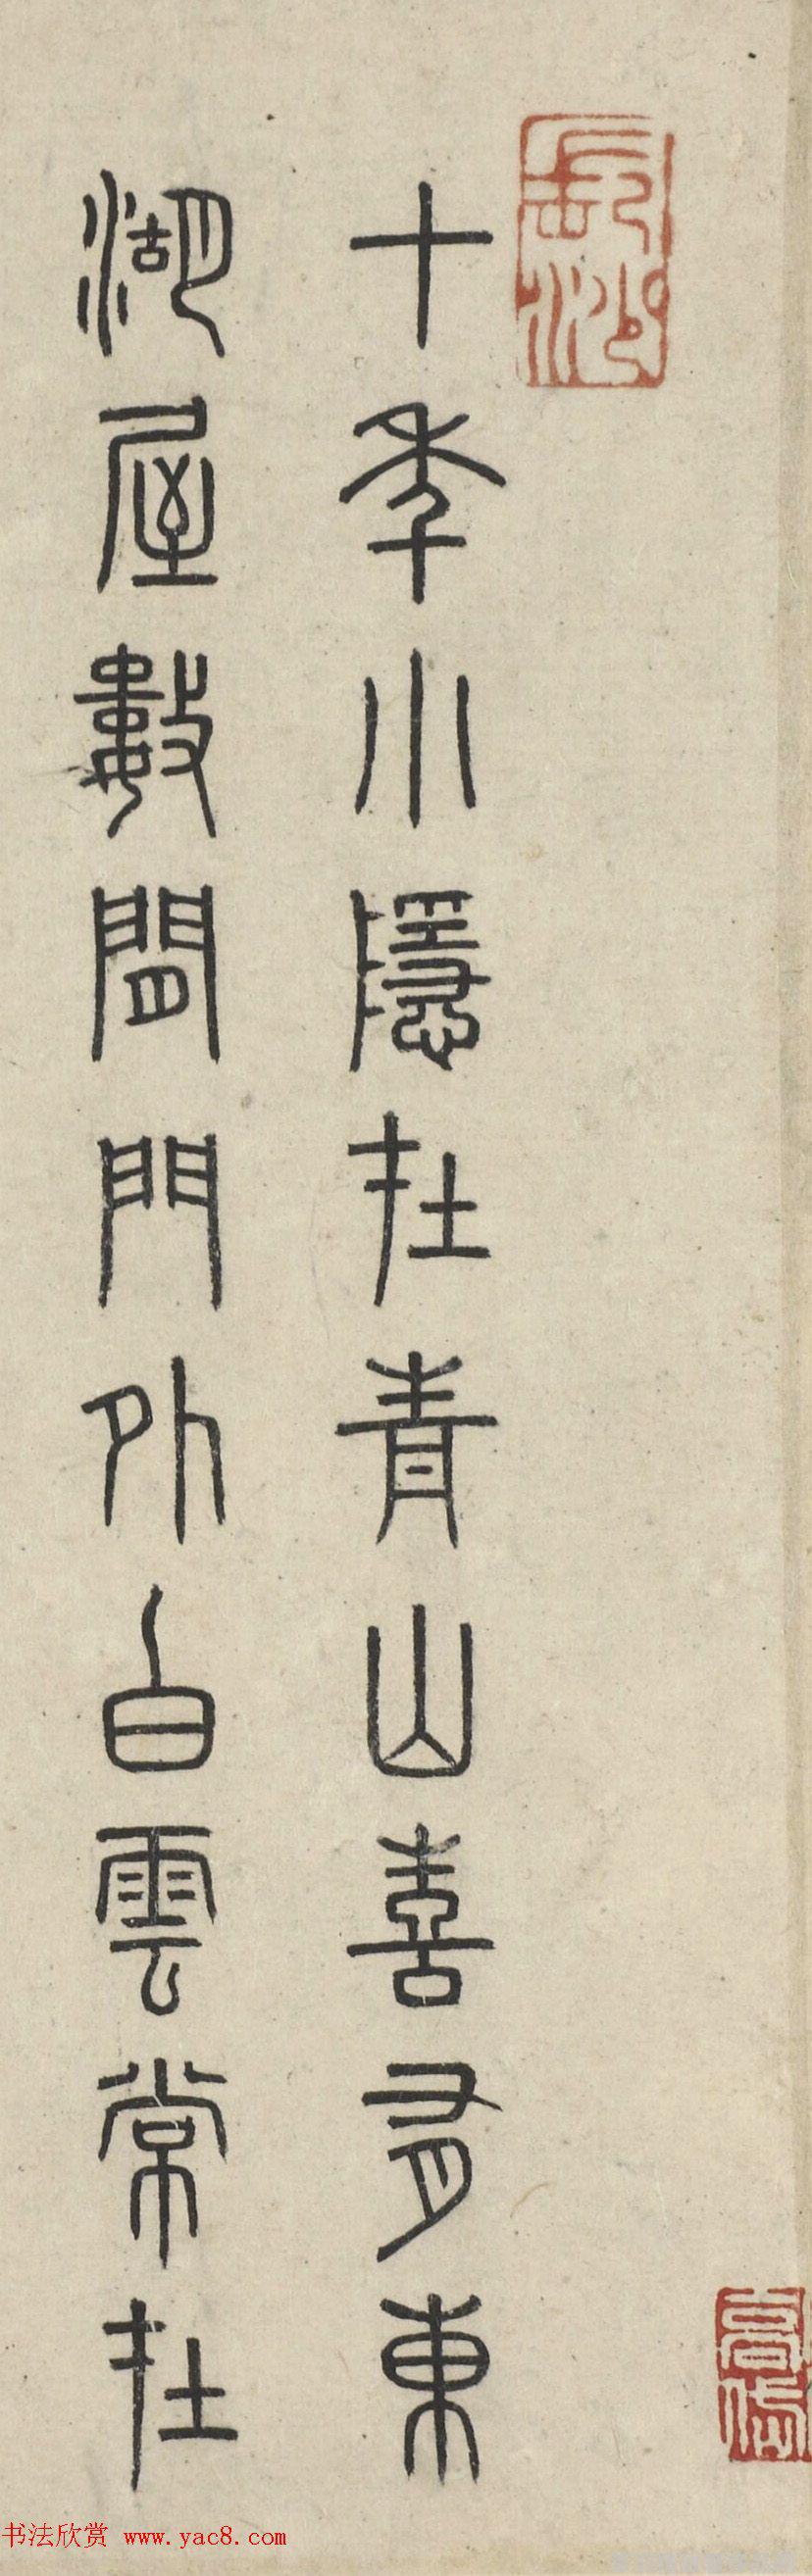 十年小隱在青山喜有東
湖屋數間門外白雲常在
书法欣赏 www.yac8.com